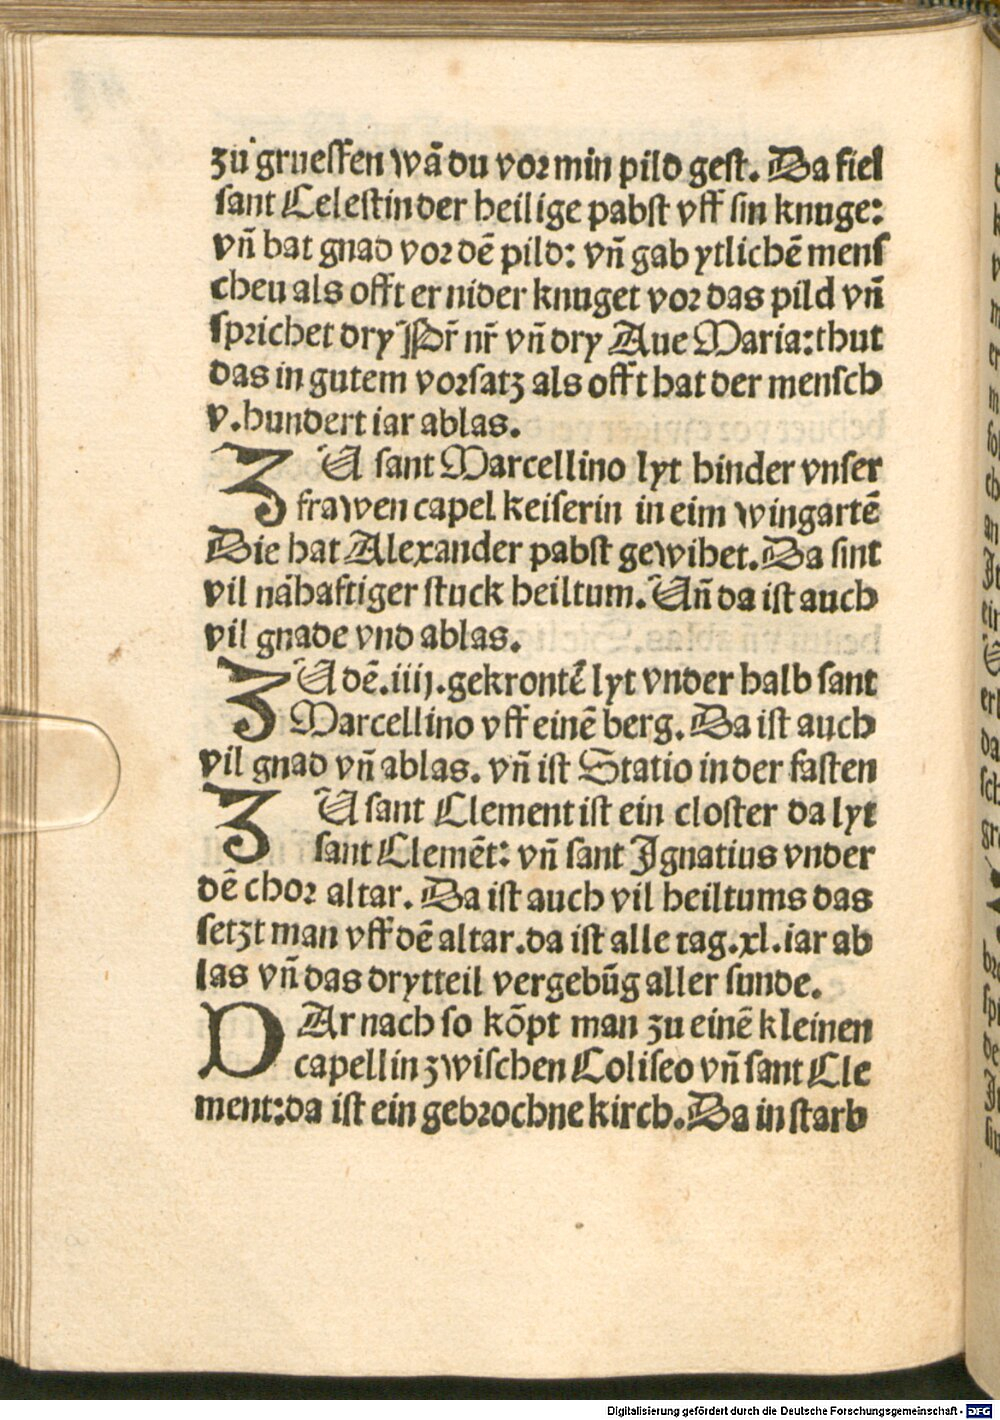 zů gruessen wā du vor min pild gest. Da fiel
sant Celestin der heilige pabst vff sin knuge:
vñ bat gnad vor dē pild: vñ gab ytlichē mens
cheu als offt er nider knuget vor das pild vñ
sprichet dry Pr̄ nr̄ vñ dry Aue Maria: thut
das in gutem vorsatz als offt hat der mensch
v. hundert iar ablas.
ZU sant Marcellino lyt hinder vnser
frawen capel keiserin in eim wingartē
Die hat Alexander pabst gewihet. Da sint
vil nāhaftiger stuck heiltum. Uñ da ist auch
vil gnade vnd ablas.
ZU dē .iiij. gekrontē lyt vnder halb sant
Marcellino vff einē berg. Da ist auch
vil gnad vñ ablas. vñ ist Statio in der fasten
ZU sant Clement ist ein closter da lyt
sant Clemēt: vñ sant Ignatius vnder
dē chor altar. Da ist auch vil heiltums das
setzt man vff dē altar. da ist alle tag .xl. iar ab
las vñ das drytteil vergebūg aller sunde.
DAr nach so kōpt man zu einē kleinen
capellin zwischen Coliseo vñ sant Cle
ment: da ist ein gebrochne kirch. Da in starb
Digitalisierung gefördert durch die Deutsche Forschungsgemeinschaft - DFG